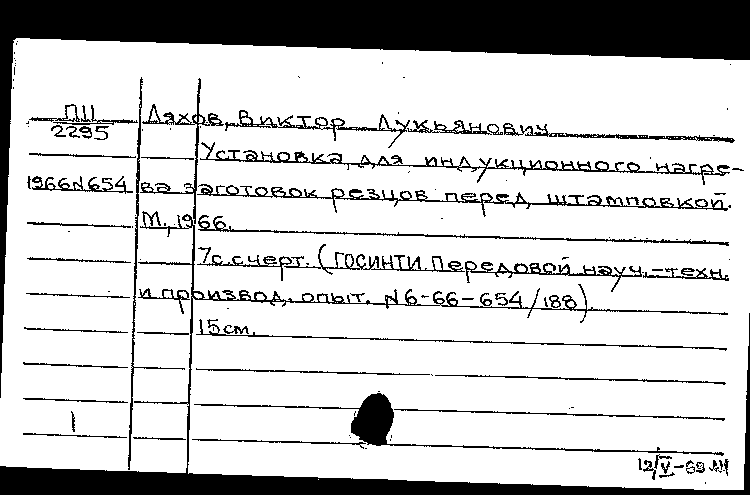 ПII Ляхов, Виктор Лукьянович
2295
Установка для индукционного нагре-
1966N654 ва заготовок резцов перед штамповкой.
М., 1966.
7с. с черт. (ГОСИНТИ. Передовой науч.-техн.
и производ. опыт. N6-66-654/188).
15см.
1
12/V-69